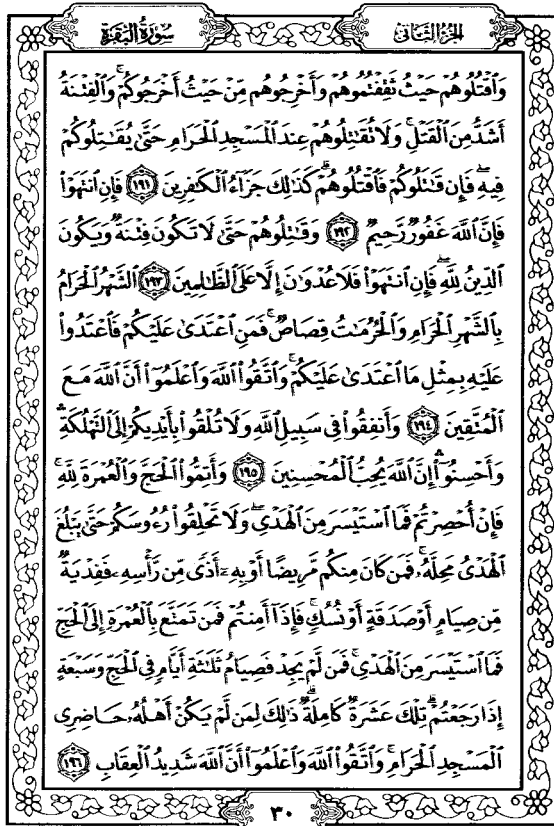 سُورَةُ البَقَرَةِ
الجُزءُ الثَّانِي
وَٱقۡتُلُوهُمۡ حَيۡثُ ثَقِفۡتُمُوهُمۡ وَأَخۡرِجُوهُم مِّنۡ حَيۡثُ أَخۡرَجُوكُمۡۚ وَٱلۡفِتۡنَةُ
أَشَدُّ مِنَ ٱلۡقَتۡلِۚ وَلَا تُقَٰتِلُوهُمۡ عِندَ ٱلۡمَسۡجِدِ ٱلۡحَرَامِ حَتَّىٰ يُقَٰتِلُوكُمۡ
فِيهِۖ فَإِن قَٰتَلُوكُمۡ فَٱقۡتُلُوهُمۡۗ كَذَٰلِكَ جَزَآءُ ٱلۡكَٰفِرِينَ ١٩١ فَإِنِ ٱنتَهَوۡاْ
فَإِنَّ ٱللَّهَ غَفُورٞ رَّحِيمٞ ١٩٢ وَقَٰتِلُوهُمۡ حَتَّىٰ لَا تَكُونَ فِتۡنَةٞ وَيَكُونَ
ٱلدِّينُ لِلَّهِۖ فَإِنِ ٱنتَهَوۡاْ فَلَا عُدۡوَٰنَ إِلَّا عَلَى ٱلظَّٰلِمِينَ ١٩٣ ٱلشَّهۡرُ ٱلۡحَرَامُ
بِٱلشَّهۡرِ ٱلۡحَرَامِ وَٱلۡحُرُمَٰتُ قِصَاصٞۚ فَمَنِ ٱعۡتَدَىٰ عَلَيۡكُمۡ فَٱعۡتَدُواْ
عَلَيۡهِ بِمِثۡلِ مَا ٱعۡتَدَىٰ عَلَيۡكُمۡۚ وَٱتَّقُواْ ٱللَّهَ وَٱعۡلَمُوٓاْ أَنَّ ٱللَّهَ مَعَ
ٱلۡمُتَّقِينَ ١٩٤ وَأَنفِقُواْ فِي سَبِيلِ ٱللَّهِ وَلَا تُلۡقُواْ بِأَيۡدِيكُمۡ إِلَى ٱلتَّهۡلُكَةِۛ
وَأَحۡسِنُوٓاْۛ إِنَّ ٱللَّهَ يُحِبُّ ٱلۡمُحۡسِنِينَ ١٩٥ وَأَتِمُّواْ ٱلۡحَجَّ وَٱلۡعُمۡرَةَ لِلَّهِۚ
فَإِنۡ أُحۡصِرۡتُمۡ فَمَا ٱسۡتَيۡسَرَ مِنَ ٱلۡهَدۡيِۖ وَلَا تَحۡلِقُواْ رُءُوسَكُمۡ حَتَّىٰ يَبۡلُغَ
ٱلۡهَدۡيُ مَحِلَّهُۥۚ فَمَن كَانَ مِنكُم مَّرِيضًا أَوۡ بِهِۦٓ أَذٗى مِّن رَّأۡسِهِۦ فَفِدۡيَةٞ
مِّن صِيَامٍ أَوۡ صَدَقَةٍ أَوۡ نُسُكٖۚ فَإِذَآ أَمِنتُمۡ فَمَن تَمَتَّعَ بِٱلۡعُمۡرَةِ إِلَى ٱلۡحَجِّ
فَمَا ٱسۡتَيۡسَرَ مِنَ ٱلۡهَدۡيِۚ فَمَن لَّمۡ يَجِدۡ فَصِيَامُ ثَلَٰثَةِ أَيَّامٖ فِي ٱلۡحَجِّ وَسَبۡعَةٍ
إِذَا رَجَعۡتُمۡۗ تِلۡكَ عَشَرَةٞ كَامِلَةٞۗ ذَٰلِكَ لِمَن لَّمۡ يَكُنۡ أَهۡلُهُۥ حَاضِرِي
ٱلۡمَسۡجِدِ ٱلۡحَرَامِۚ وَٱتَّقُواْ ٱللَّهَ وَٱعۡلَمُوٓاْ أَنَّ ٱللَّهَ شَدِيدُ ٱلۡعِقَابِ ١٩٦
٣٠